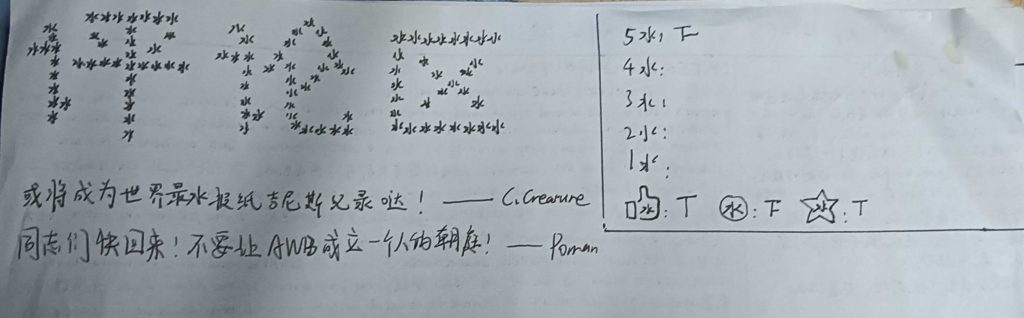 评论区
5水: F
4水:
3水:
2水:
1水:
水: T 水: F 水: T
或将成为世界最水报纸吉尼斯记录哒! —— C.Crearure
同志们快回来! 不要让AWB成立一个人的朝庭! —— Poman